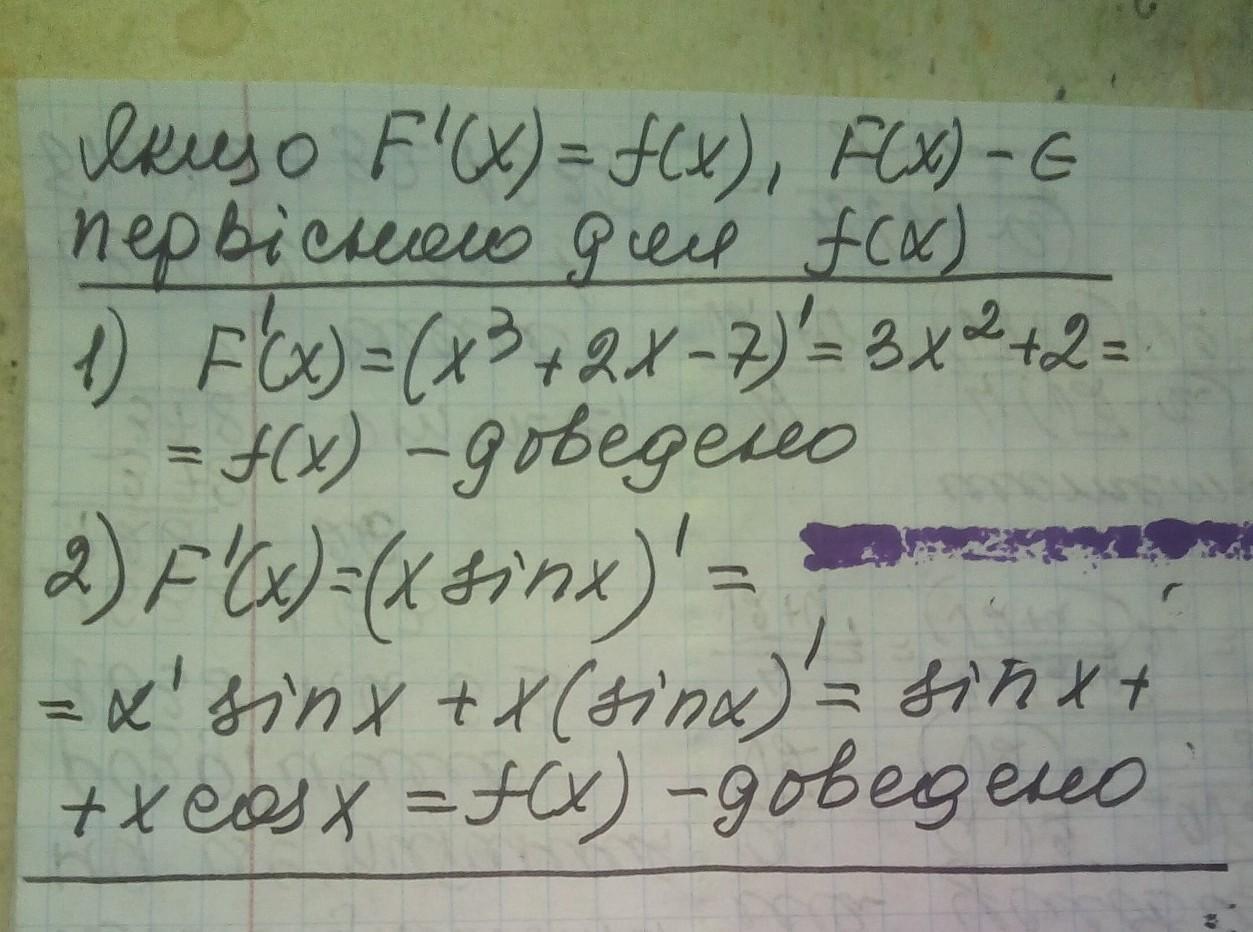 Якщо F'(x) = f(x), F(x) - є
первісною для f(x)
1) F'(x) = (x³ + 2x - 7)' = 3x² + 2 =
= f(x) - доведено
2) F'(x) = (x sin x)' =
= x' sin x + x (sin x)' = sin x +
+ x cos x = f(x) - доведено